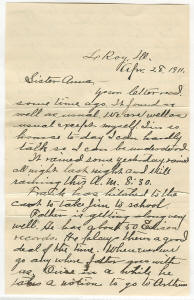 Le Roy, Ill.
Apr. 28, 1911.
Sister Anna—
Your letter rec'd
some time ago. It found us
well as usual. We are well as
usual except myself. I'm so
hoarse to day I can hardly
talk so I can be understood.
It rained some yesterday and
all night last night and still
raining this A.M. 8:30.
is hitched to the
cart to take Jim to school
Father is getting along very
well. He has about 50 Edison
records. He plays them a good
deal of the time. Whenever we
go any where sister goes with
us. Once in a while he
takes a notion to go to Arthur